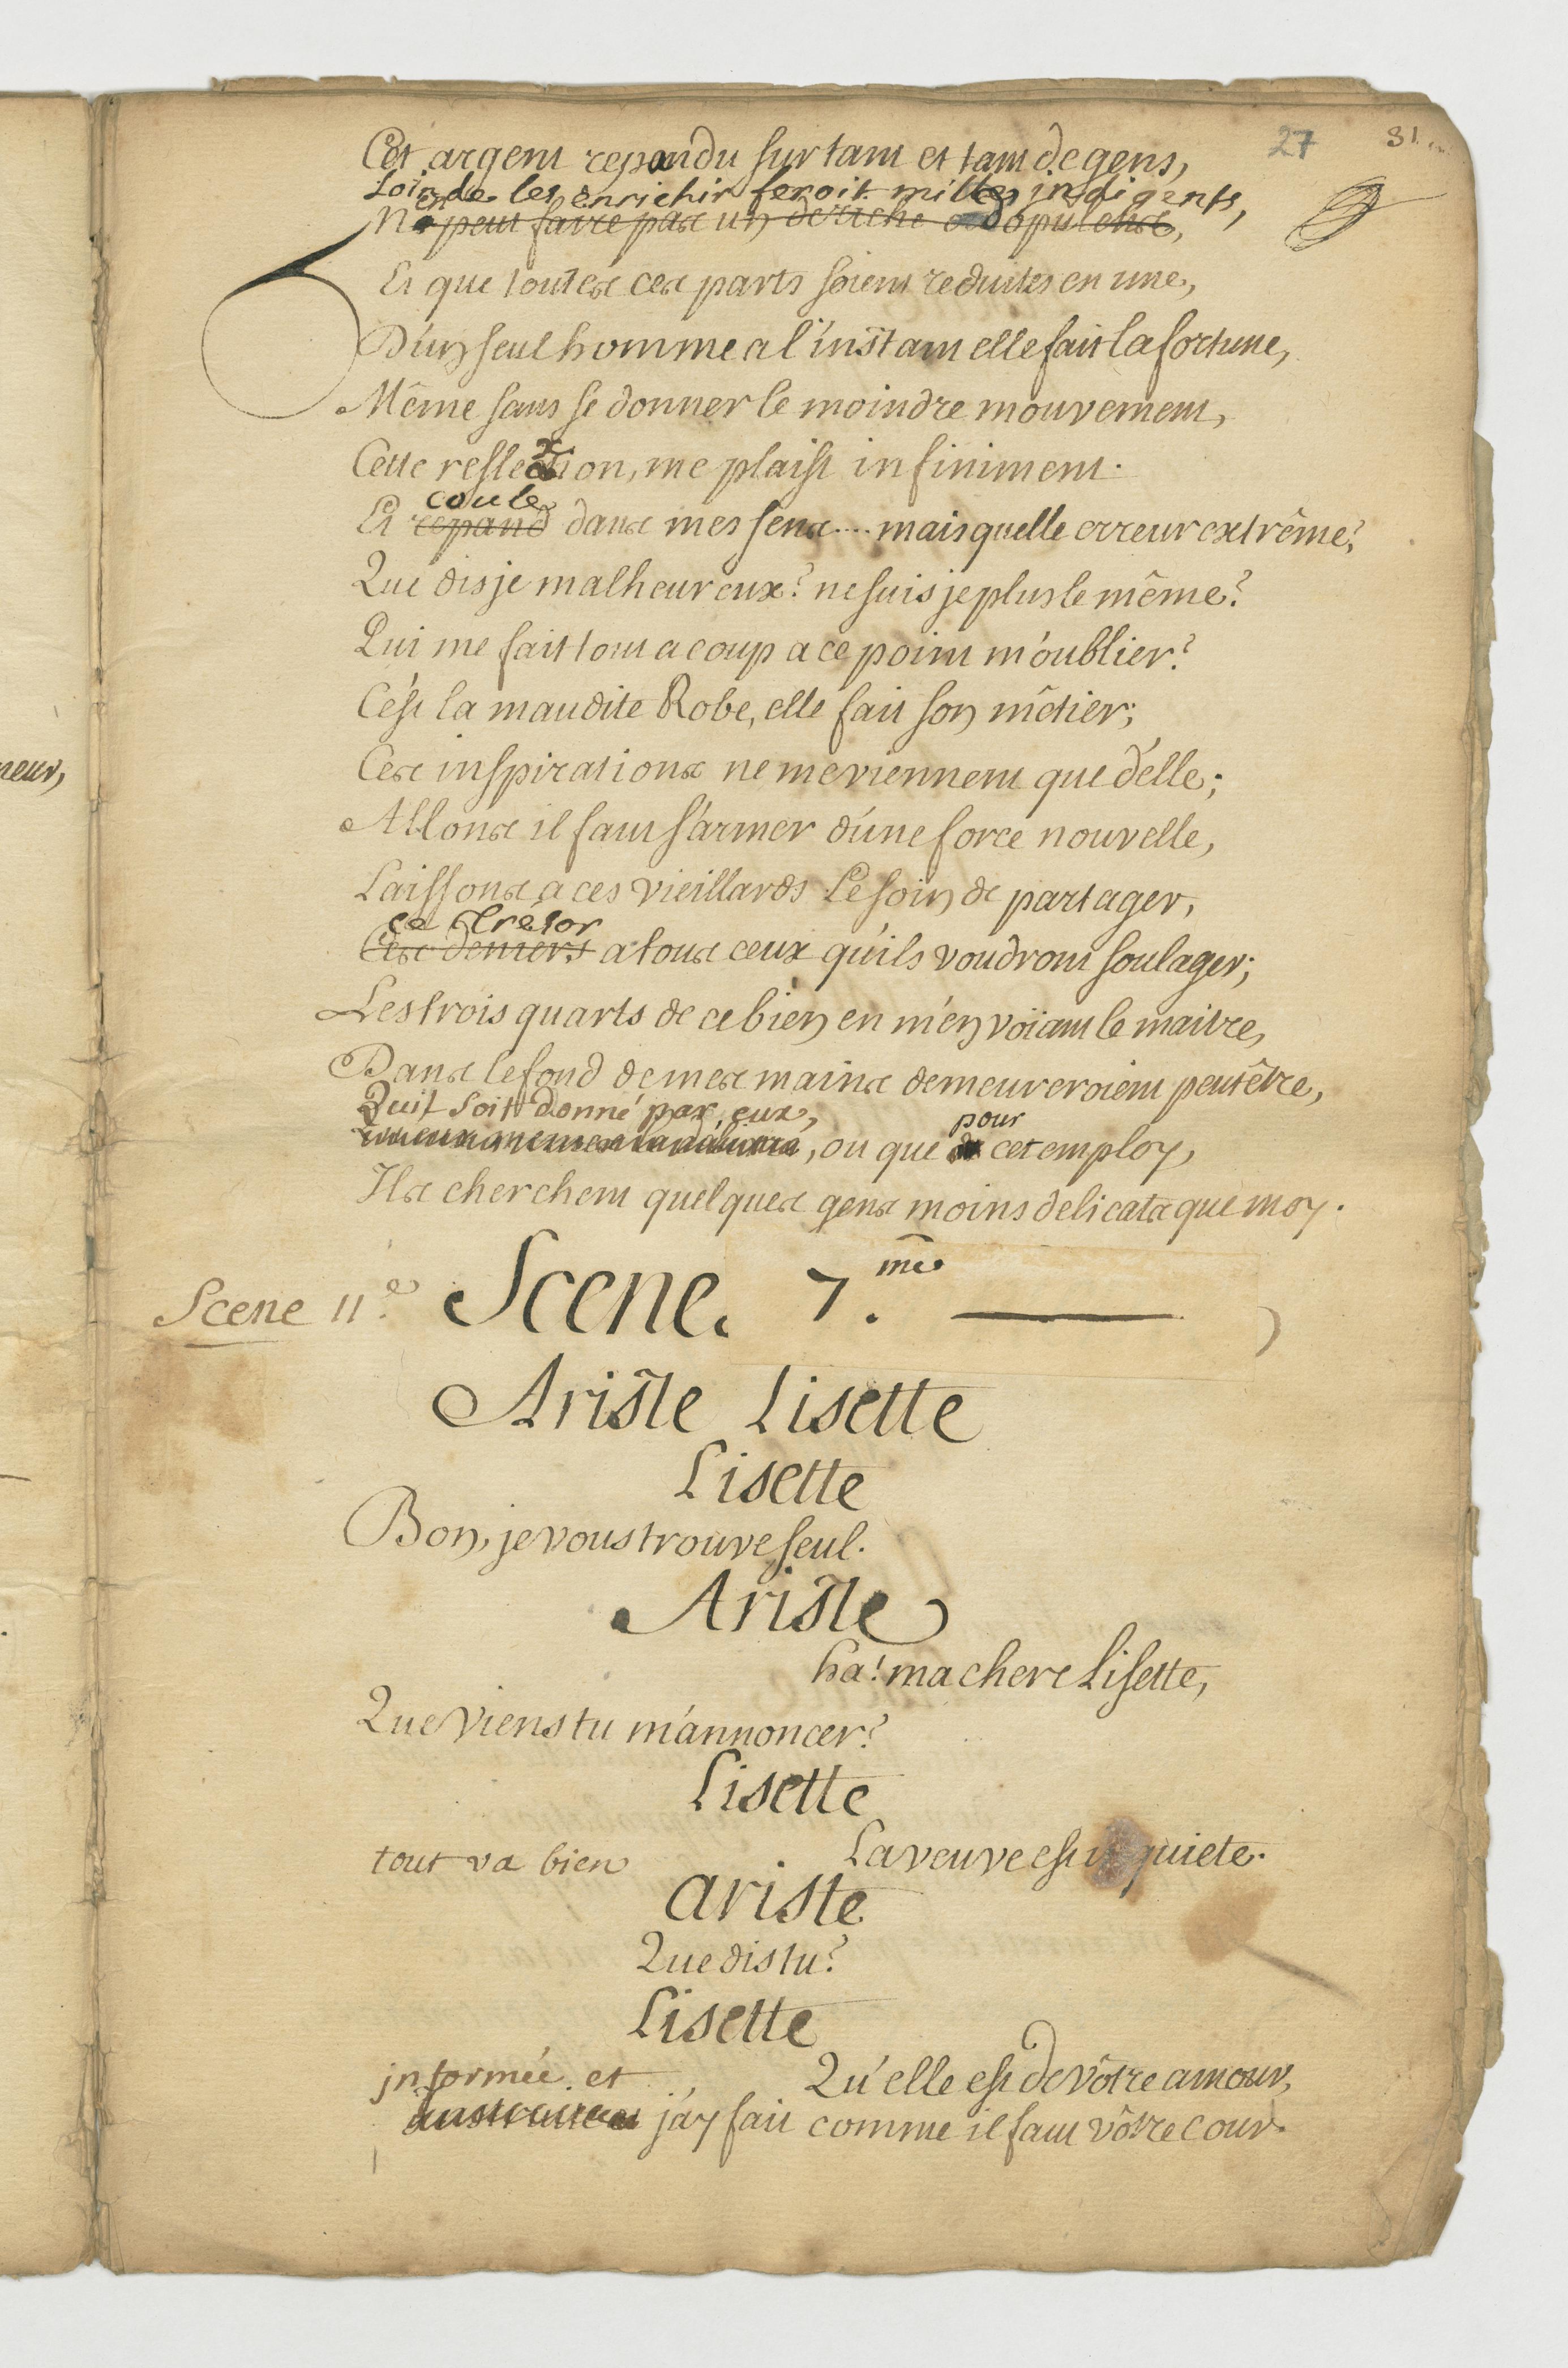 27
31
Cet argent repandu sur tant et tant de gens,
Loin de les enrichir feroit milles indigents,
Ne peut faire pas un de riche
Et que toutes ces parts soient reduites en une,
D'un seul homme a l'instant elle fait la fortune,
Même sans se donner le moindre mouvement,
Cette reflexion, me plaist infiniment.
coule
Et repand dans mes sens.... mais quelle erreur extrême?
Que dis je malheureux? ne suis je plus le même?
Qui me fait tout a coup a ce point m'oublier?
C'est la maudite Robe, elle fait son mêtier;
Ces inspirations ne me viennent que d'elle;
Allons il faut s'armer d'une force nouvelle,
Laissons a ces vieillards Le soin de partager,
ce Trésor
Ces deniers a tous ceux qu'ils voudront soulager;
Les trois quarts de ce bien en m'en voïant le maitre,
Dans le fond de mes mains demeureroient peutêtre,
Qu'il soit donné par eux,
pour
, ou que cet employ,
Ils cherchent quelques gens moins delicats que moy.
Scene 11.e Scene. 7.me
Ariste Lisette
Lisette
Bon, je vous trouve seul.
Ariste
ha! ma chere Lisette,
Que viens tu m'annoncer?
Lisette
tout va bien La veuve est inquiete.
ariste
Que dis tu?
Lisette
Qu'elle est de vôtre amour,
informée et
j'ay fait comme il faut vôtre cour.
neur,